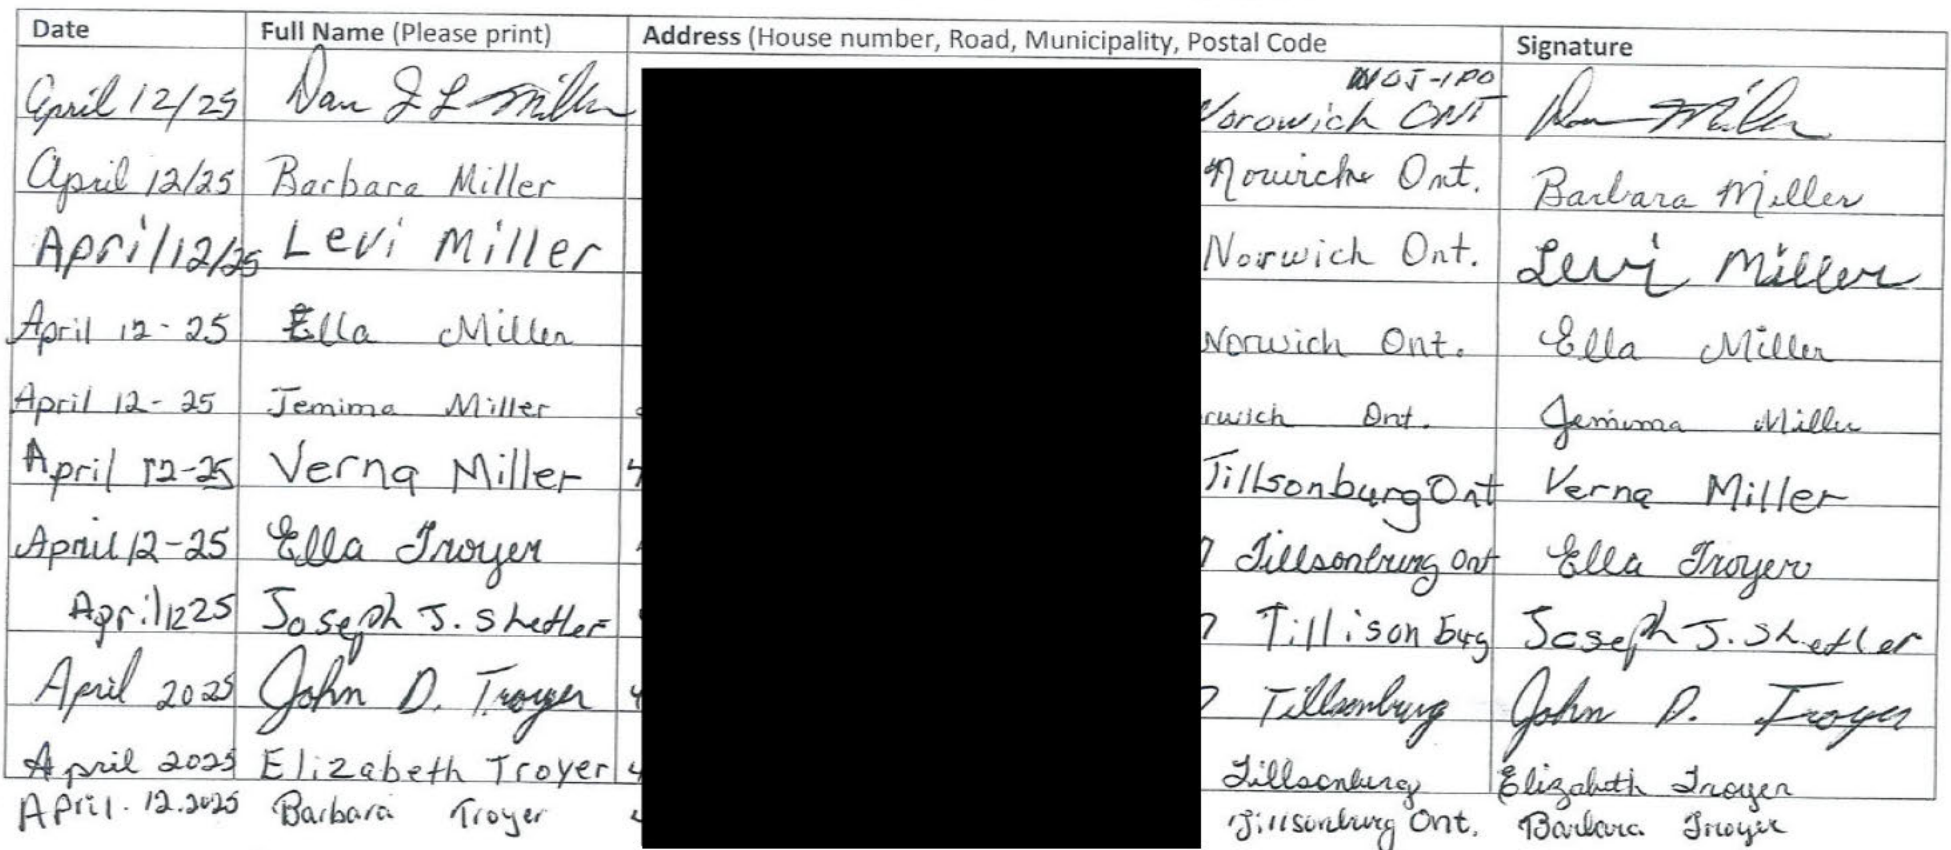 Date Full Name (Please print) Address (House number, Road, Municipality, Postal Code Signature
N0J-1P0
April 12/25 Dan J L Miller Norowich ONT Dan Miller
April 12/25 Barbara Miller Norwiche Ont. Barbara Miller
April 12/25 Levi Miller Norwich Ont. Levi Miller
April 12-25 Ella Miller Norwich Ont. Ella Miller
April 12-25 Jemima Miller rwich Ont. Jemima Miller
April 12-25 Verna Miller Tillsonburg Ont Verna Miller
April 12-25 Ella Troyer Tillsonburg Ont Ella Troyer
April 12 25 Joseph J. Shetler Tillison burg Joseph J. Shetler
April 2025 John D. Troyer Tillsonburg John D. Troyer
April 2025 Elizabeth Troyer Tillsonburg Elizabeth Troyer
April. 12. 2025 Barbara Troyer Tillsonburg Ont. Barbara Troyer